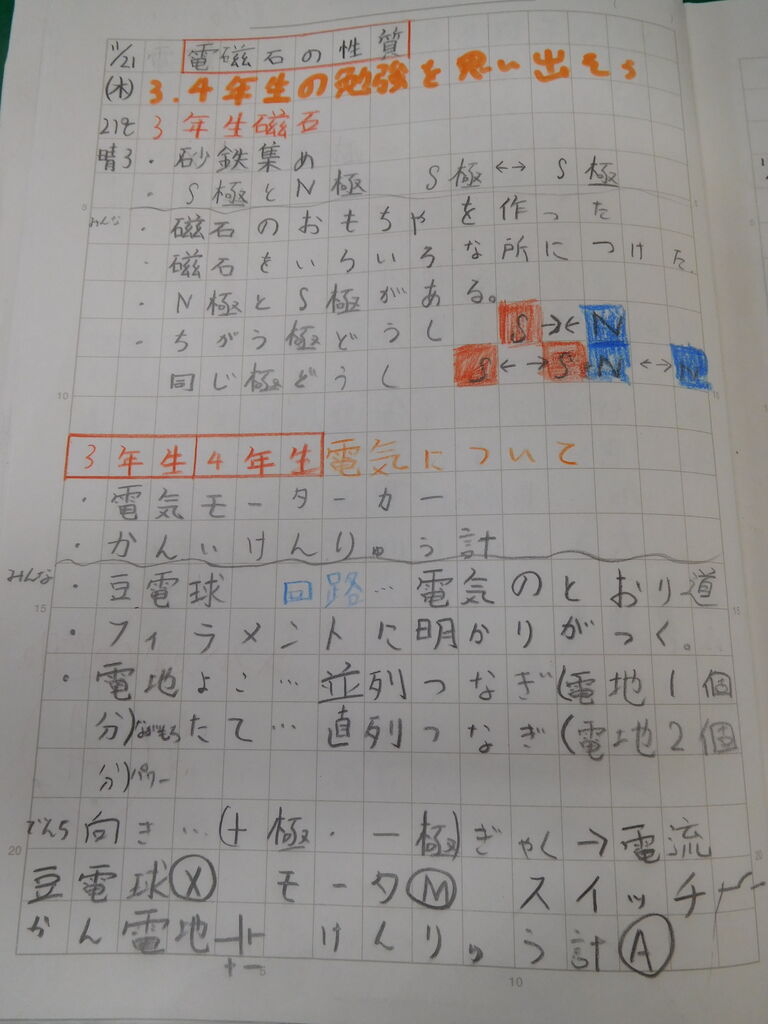 11/21 電磁石の性質
(木) 3.4年生の勉強を思い出そう
21℃ 3年生磁石
晴3 ・砂鉄集め
・S極とN極 S極↔S極
みんな ・磁石のおもちゃを作った
・磁石をいろいろな所につけた
・N極とS極がある。
・ちがう極どうし S→←N
同じ極どうし S←→S N←→N
3年生 4年生 電気について
・電気モーターカー
・かんいけんりゅう計
みんな ・豆電球 回路…電気のとおり道
・フィラメントに明かりがつく。
・電地よこ…並列つなぎ(電地1個
分)ながもち たて…直列つなぎ(電地2個
分)パワー
でんち向き…(+極・ー極)ぎゃく→電流
豆電球 X モータ M スイッチ
かん電地 + − けんりゅう計 A
5 10 15 20
10
5 10 15 20